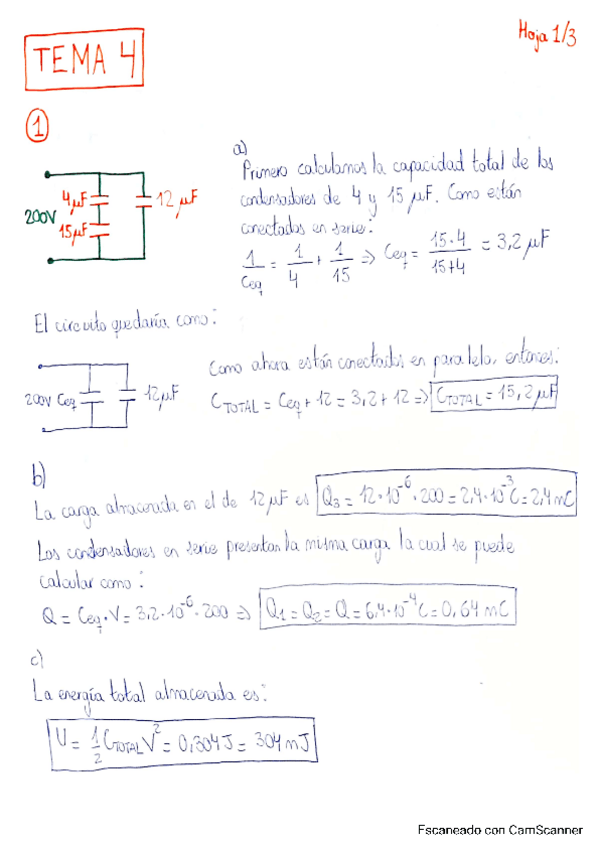 Hoja 1/3
TEMA 4
1
a)
Primero calculamos la capacidad total de los
condensadores de 4 y 15 μF. Como están
conectados en serie:
1/Ceq = 1/4 + 1/15 => Ceq = 15·4/15+4 = 3,2 μF
200V
4μF
15μF
12 μF
El circuito quedaría como:
200V Ceq
12μF
Como ahora están conectados en paralelo, entonces:
CTOTAL = Ceq + 12 = 3,2 + 12 => CTOTAL = 15,2 μF
b)
La carga almacenada en el de 12μF es Q3 = 12·10^-6·200 = 2,4·10^-3 C = 2,4 mC
Los condensadores en serie presentan la misma carga la cual se puede
calcular como:
Q = Ceq·V = 3,2·10^-6·200 => Q1 = Q2 = Q = 6,4·10^-4 C = 0,64 mC
c)
La energía total almacenada es:
U = 1/2 CTOTAL V^2 = 0,304 J = 304 mJ
Escaneado con CamScanner